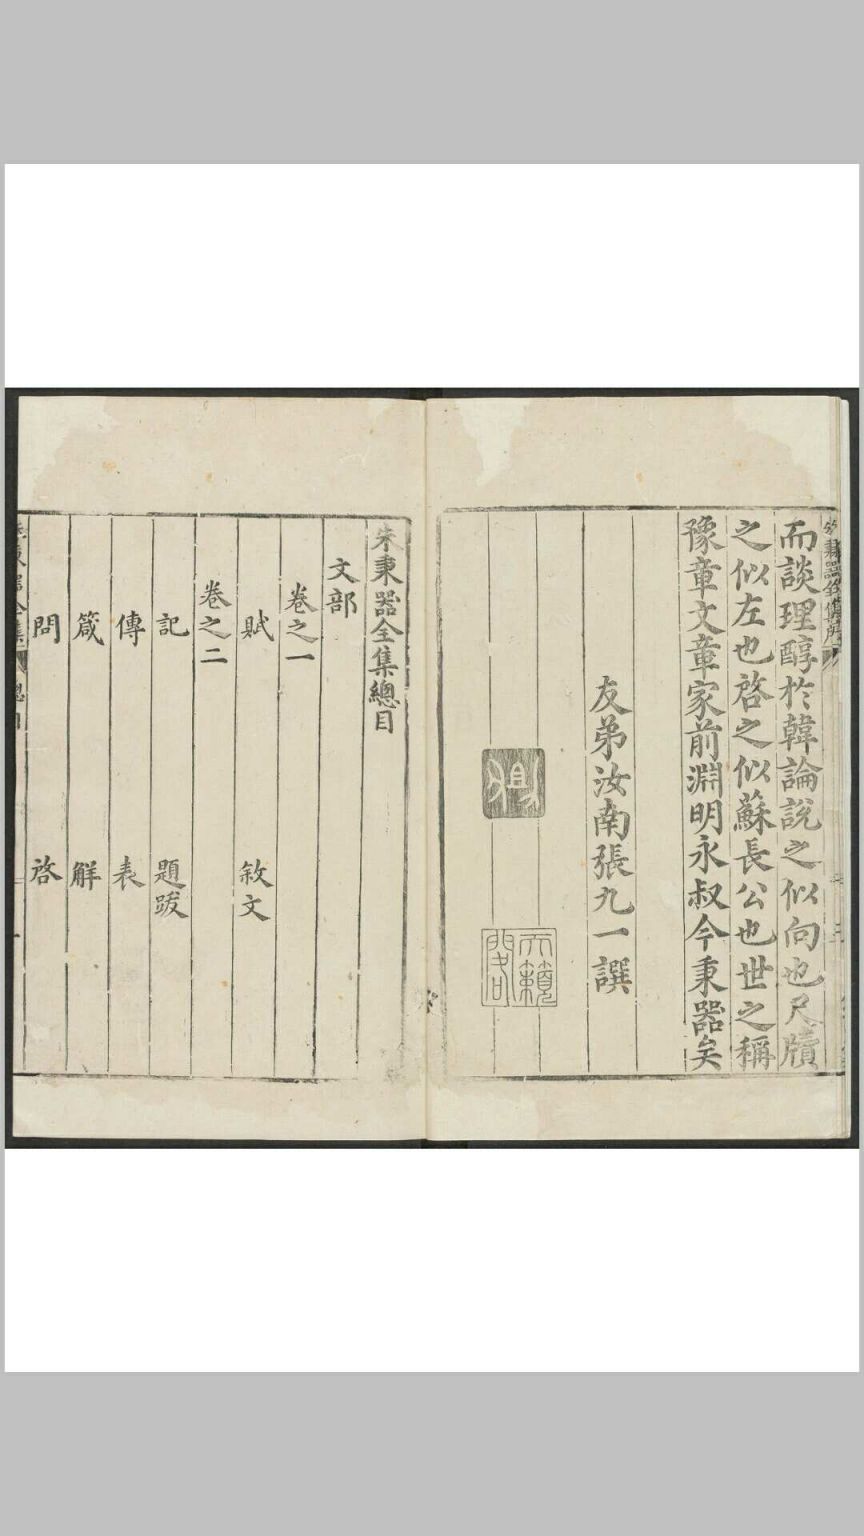 而談理醇於韓論說之似向也尺牘
之似左也啓之似蘇長公也世之稱
豫章文章家前淵明永叔今秉器矣
友弟汝南張九一譔
朱秉器全集總目
文部
卷之一
賦 敘文
卷之二
記 題跋
傳 表
箴 解
問 啓